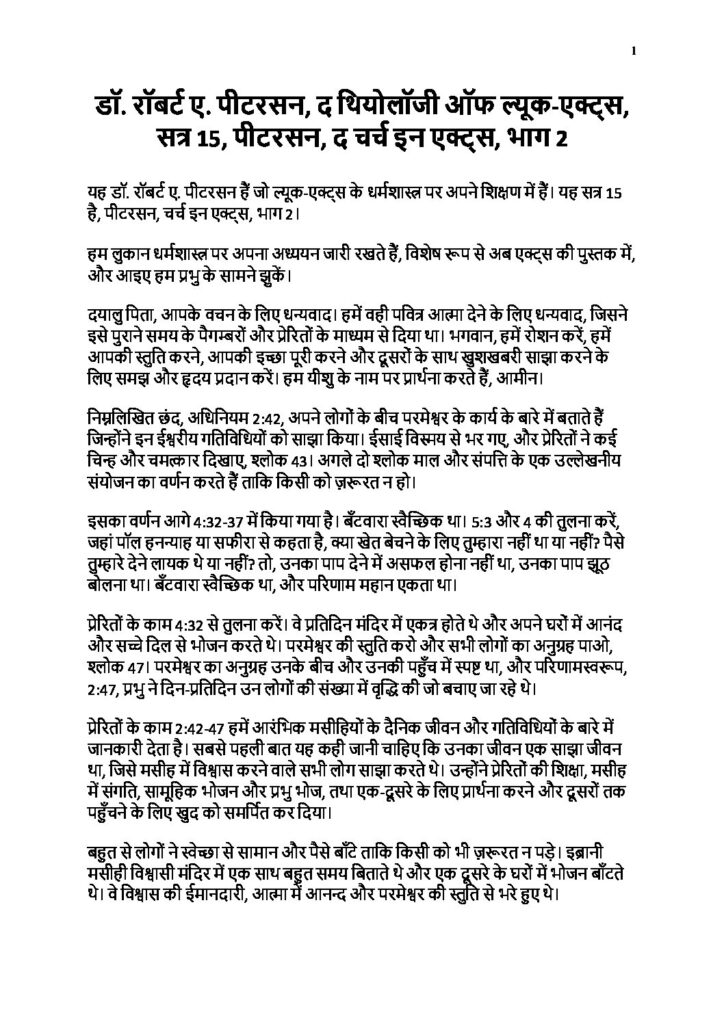 1
डॉ. रॉबर्ट ए. पीटरसन, द थियोलॉजी ऑफ ल्यूक-एक्ट्स,
सत्र 15, पीटरसन, द चर्च इन एक्ट्स, भाग 2
यह डॉ. रॉबर्ट ए. पीटरसन हैं जो ल्यूक-एक्ट्स के धर्मशास्त्र पर अपने शिक्षण में हैं। यह सत्र 15
है, पीटरसन, चर्च इन एक्ट्स, भाग 2।
हम लुकान धर्मशास्त्र पर अपना अध्ययन जारी रखते हैं, विशेष रूप से अब एक्ट्स की पुस्तक में,
और आइए हम प्रभु के सामने झुकें।
दयालु पिता, आपके वचन के लिए धन्यवाद। हमें वही पवित्र आत्मा देने के लिए धन्यवाद, जिसने
इसे पुराने समय के पैगम्बरों और प्रेरितों के माध्यम से दिया था। भगवान, हमें रोशन करें, हमें
आपकी स्तुति करने, आपकी इच्छा पूरी करने और दूसरों के साथ खुशखबरी साझा करने के
लिए समझ और हृदय प्रदान करें। हम यीशु के नाम पर प्रार्थना करते हैं, आमीन।
निम्नलिखित छंद, अधिनियम 2:42, अपने लोगों के बीच परमेश्वर के कार्य के बारे में बताते हैं
जिन्होंने इन ईश्वरीय गतिविधियों को साझा किया। ईसाई विस्मय से भर गए, और प्रेरितों ने कई
चिन्ह और चमत्कार दिखाए, श्लोक 43। अगले दो श्लोक माल और संपत्ति के एक उल्लेखनीय
संयोजन का वर्णन करते हैं ताकि किसी को ज़रूरत न हो।
इसका वर्णन आगे 4:32-37 में किया गया है। बँटवारा स्वैच्छिक था। 5:3 और 4 की तुलना करें,
जहां पॉल हनन्याह या सफीरा से कहता है, क्या खेत बेचने के लिए तुम्हारा नहीं था या नहीं? पैसे
तुम्हारे देने लायक थे या नहीं? तो, उनका पाप देने में असफल होना नहीं था, उनका पाप झूठ
बोलना था। बँटवारा स्वैच्छिक था, और परिणाम महान एकता था।
प्रेरितों के काम 4:32 से तुलना करें। वे प्रतिदिन मंदिर में एकत्र होते थे और अपने घरों में आनंद
और सच्चे दिल से भोजन करते थे। परमेश्वर की स्तुति करो और सभी लोगों का अनुग्रह पाओ,
श्लोक 47। परमेश्वर का अनुग्रह उनके बीच और उनकी पहुँच में स्पष्ट था, और परिणामस्वरूप,
2:47, प्रभु ने दिन-प्रतिदिन उन लोगों की संख्या में वृद्धि की जो बचाए जा रहे थे।
प्रेरितों के काम 2:42-47 हमें आरंभिक मसीहियों के दैनिक जीवन और गतिविधियों के बारे में
जानकारी देता है। सबसे पहली बात यह कही जानी चाहिए कि उनका जीवन एक साझा जीवन
था, जिसे मसीह में विश्वास करने वाले सभी लोग साझा करते थे। उन्होंने प्रेरितों की शिक्षा, मसीह
में संगति, सामूहिक भोजन और प्रभु भोज, तथा एक-दूसरे के लिए प्रार्थना करने और दूसरों तक
पहुँचने के लिए खुद को समर्पित कर दिया।
बहुत से लोगों ने स्वेच्छा से सामान और पैसे बाँटे ताकि किसी को भी ज़रूरत न पड़े। इब्रानी
मसीही विश्वासी मंदिर में एक साथ बहुत समय बिताते थे और एक दूसरे के घरों में भोजन बाँटते
थे। वे विश्वास की ईमानदारी, आत्मा में आनन्द और परमेश्वर की स्तुति से भरे हुए थे।